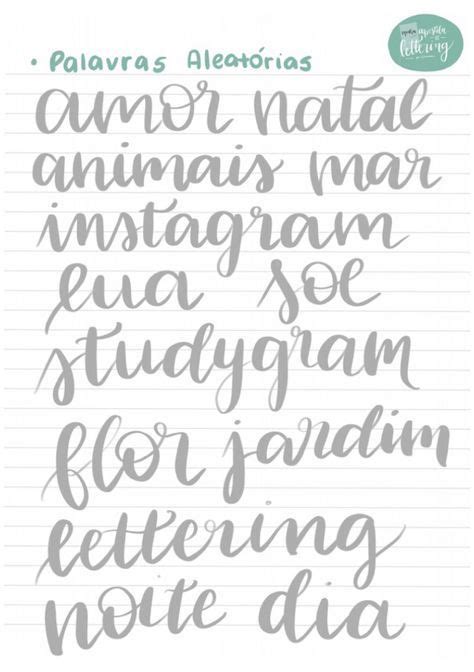 apostila
lettering
• Palavras Aleatórias
amor natal
animais mar
instagram
lua sol
studygram
flor jardim
lettering
noite dia